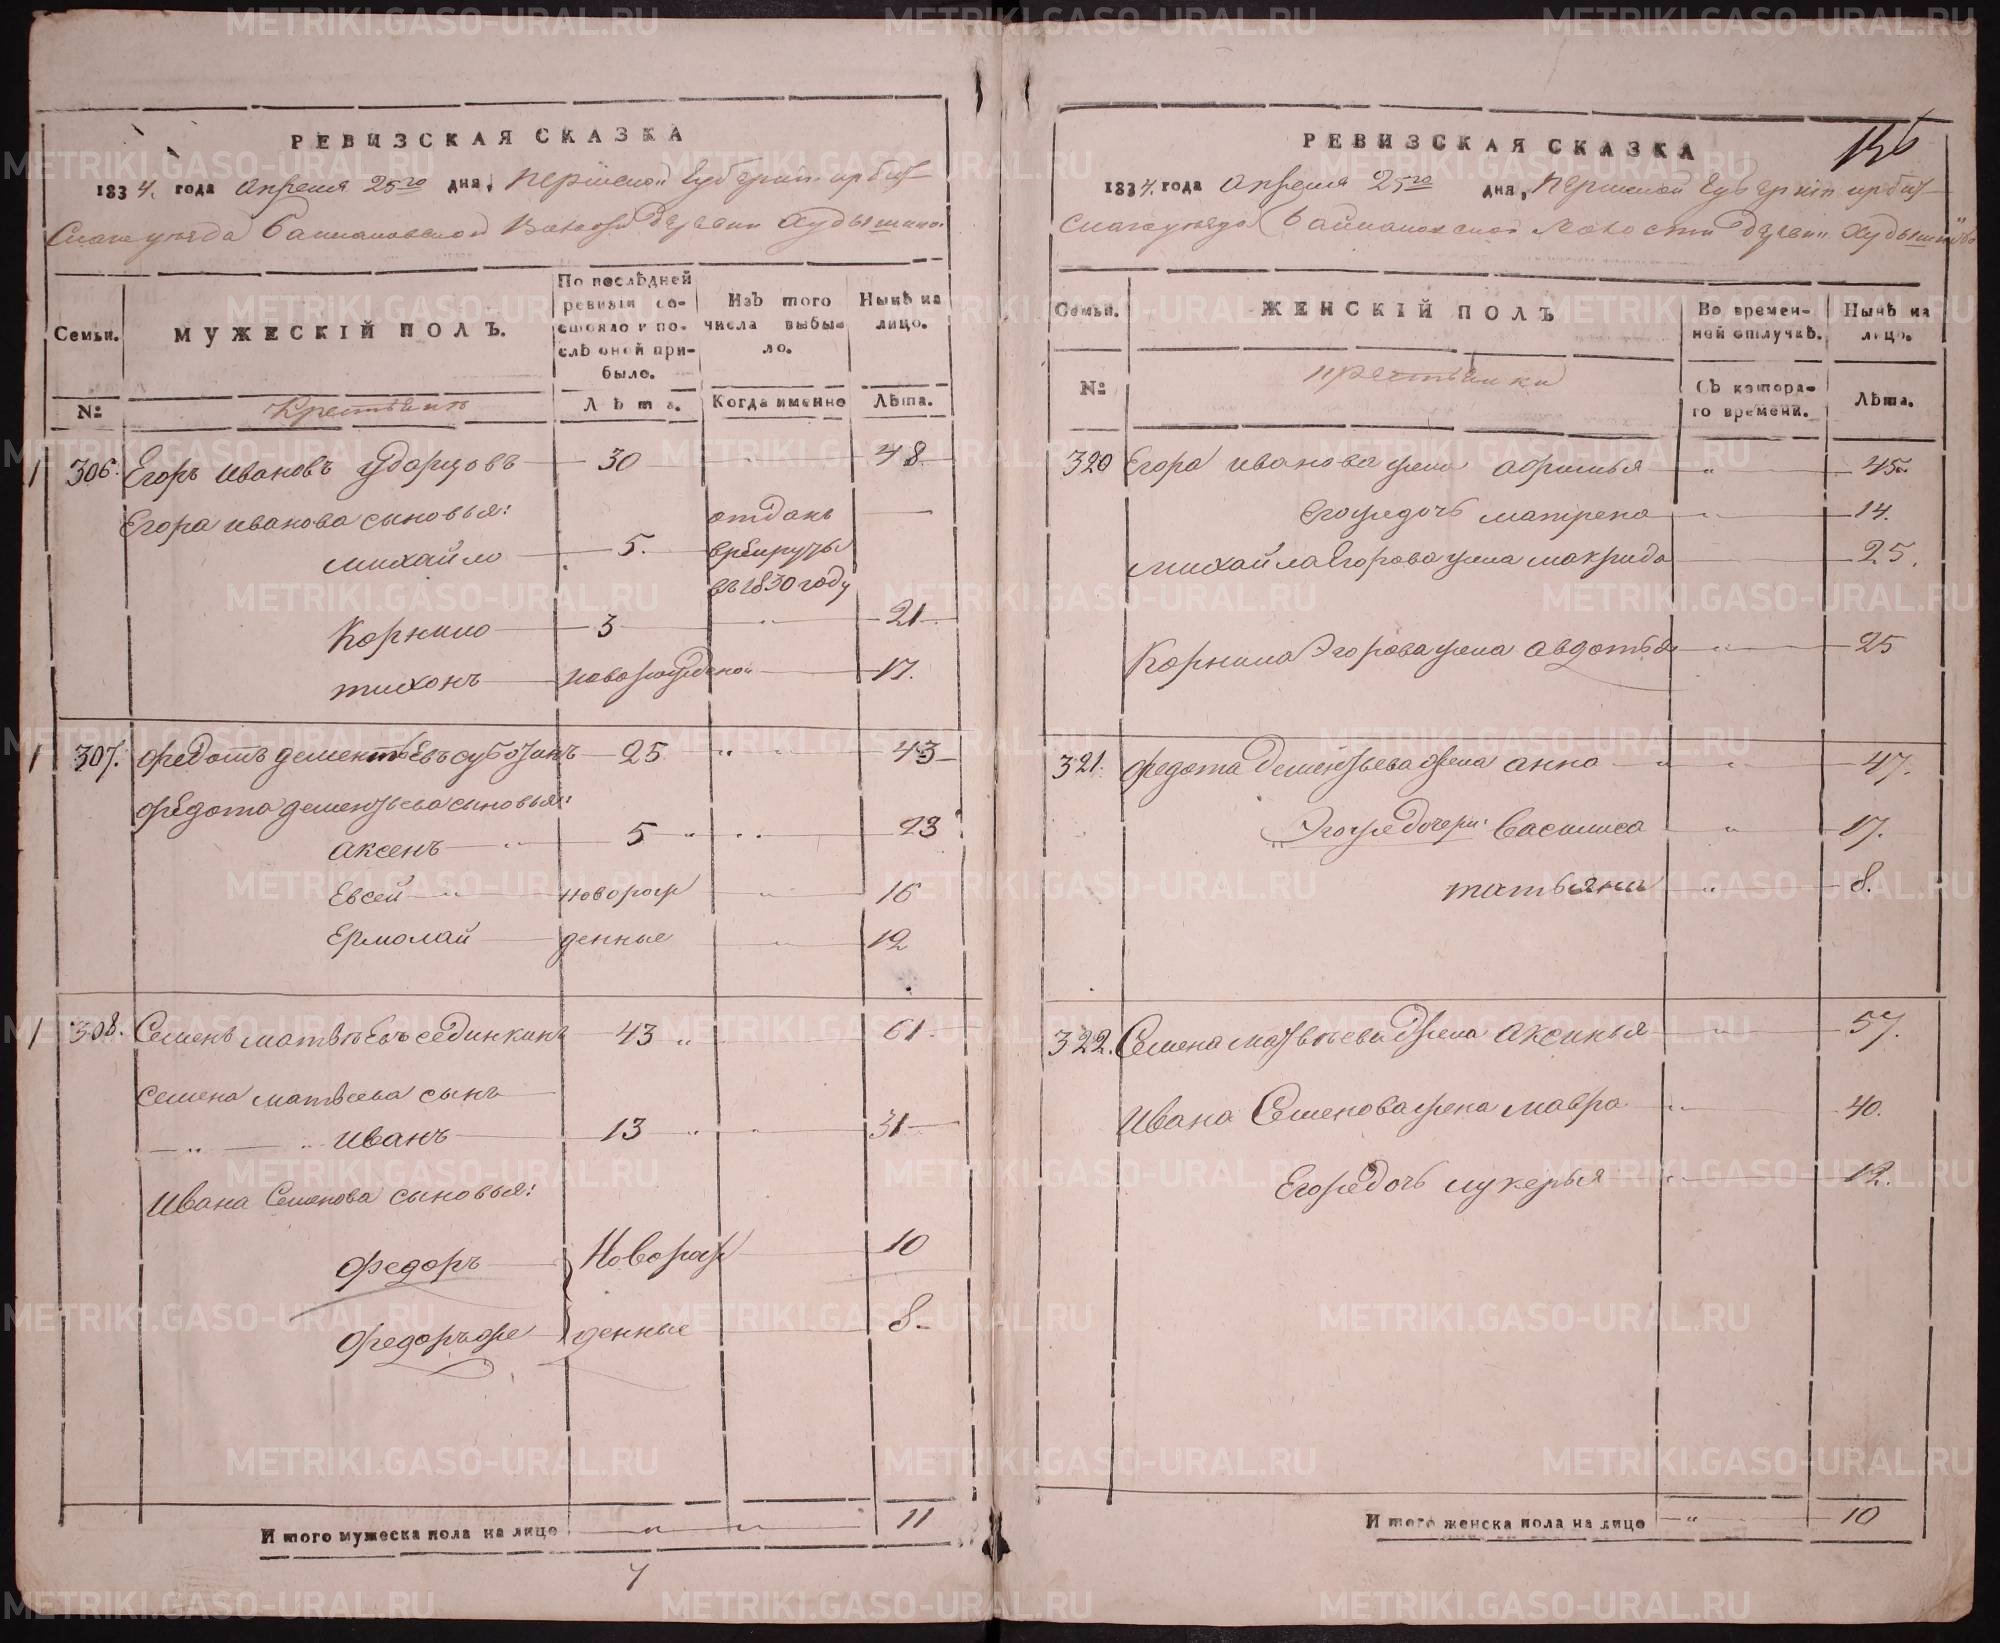 РЕВИЗСКАЯ СКАЗКА
1834. года апреля 25го дня, пермской губернии ирбит
скаго уезда байкаловской волости деревни худышино
Семьи.
МУЖЕСКІЙ ПОЛЪ.
По послѣдней ревизіи состояло и послѣ оной прибыло.
Изъ того числа выбыло.
Нынѣ на лицо.
№
Крестьянъ
Лѣта.
Когда именно
Лѣта.
1 306. Егоръ ивановъ ударцовъ 30 48
Егора иванова сыновья: отданъ
михайло 5. врекруты
въ 1830 году
Корнило 3 21
тихонъ новорожденой 17.
1 307. Федотъ дементьевъ суботинъ 25 43
Федота дементьева сыновья:
аксенъ 5 23
Евсей новорож 16
Ермолай денные 12
1 308. Семенъ матвѣевъ сединкинъ 43 61
семена матвеева сынъ
иванъ 13 31
Ивана Семенова сыновья:
Федоръ Новорож 10
Федоръ же денные 8
Итого мужеска пола на лицо 11
РЕВИЗСКАЯ СКАЗКА
136
1834. года апреля 25го дня, пермской губерніи ирбит
скаго уезда байкаловской волости деревни худышино
Семьи.
ЖЕНСКІЙ ПОЛЪ
Во временной отлучкѣ.
Нынѣ на лицо.
№
крестьянки
Съ котораго времени.
Лѣта.
320 Егора иванова жена афимья 45
Его же дочь матрена 14.
михайла Егорова жена макрида 25.
Корнила Эгорова жена авдотья 25
321. федота дементьева жена анна 47.
Эго же дочери: Василиса 17.
татьяна 8.
322. Семена матвѣева жена аксинья 57.
Ивана Семенова жена мавра 40.
Его же дочь лукерья 12.
Итого женска пола на лицо 10
METRIKI.GASO-URAL.RU